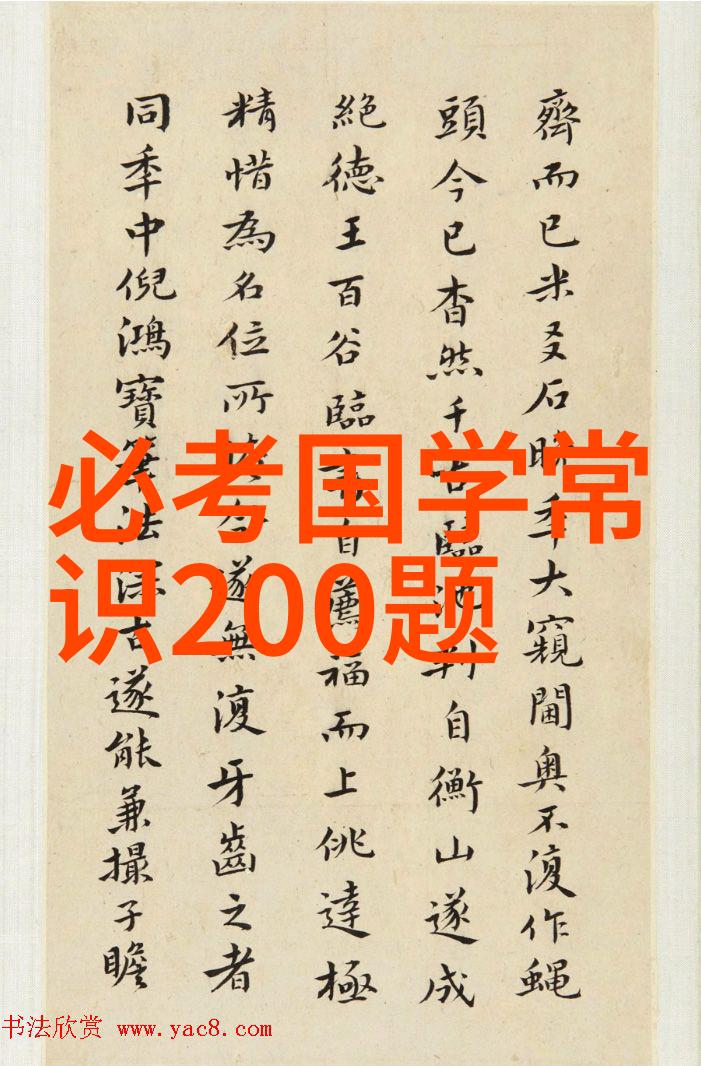 齊而已米友石晚年大窺閫奧不復作蠅
頭今已杳然千古臨池到自衡山遂成
絕德王百谷臨自薦福而上佻達極
精惜為名位所今遂無復牙齒之者
同年中倪鴻寶筆法深古遂能兼撮子瞻
必考国学常
识200题
书法欣赏 www.yac8.com